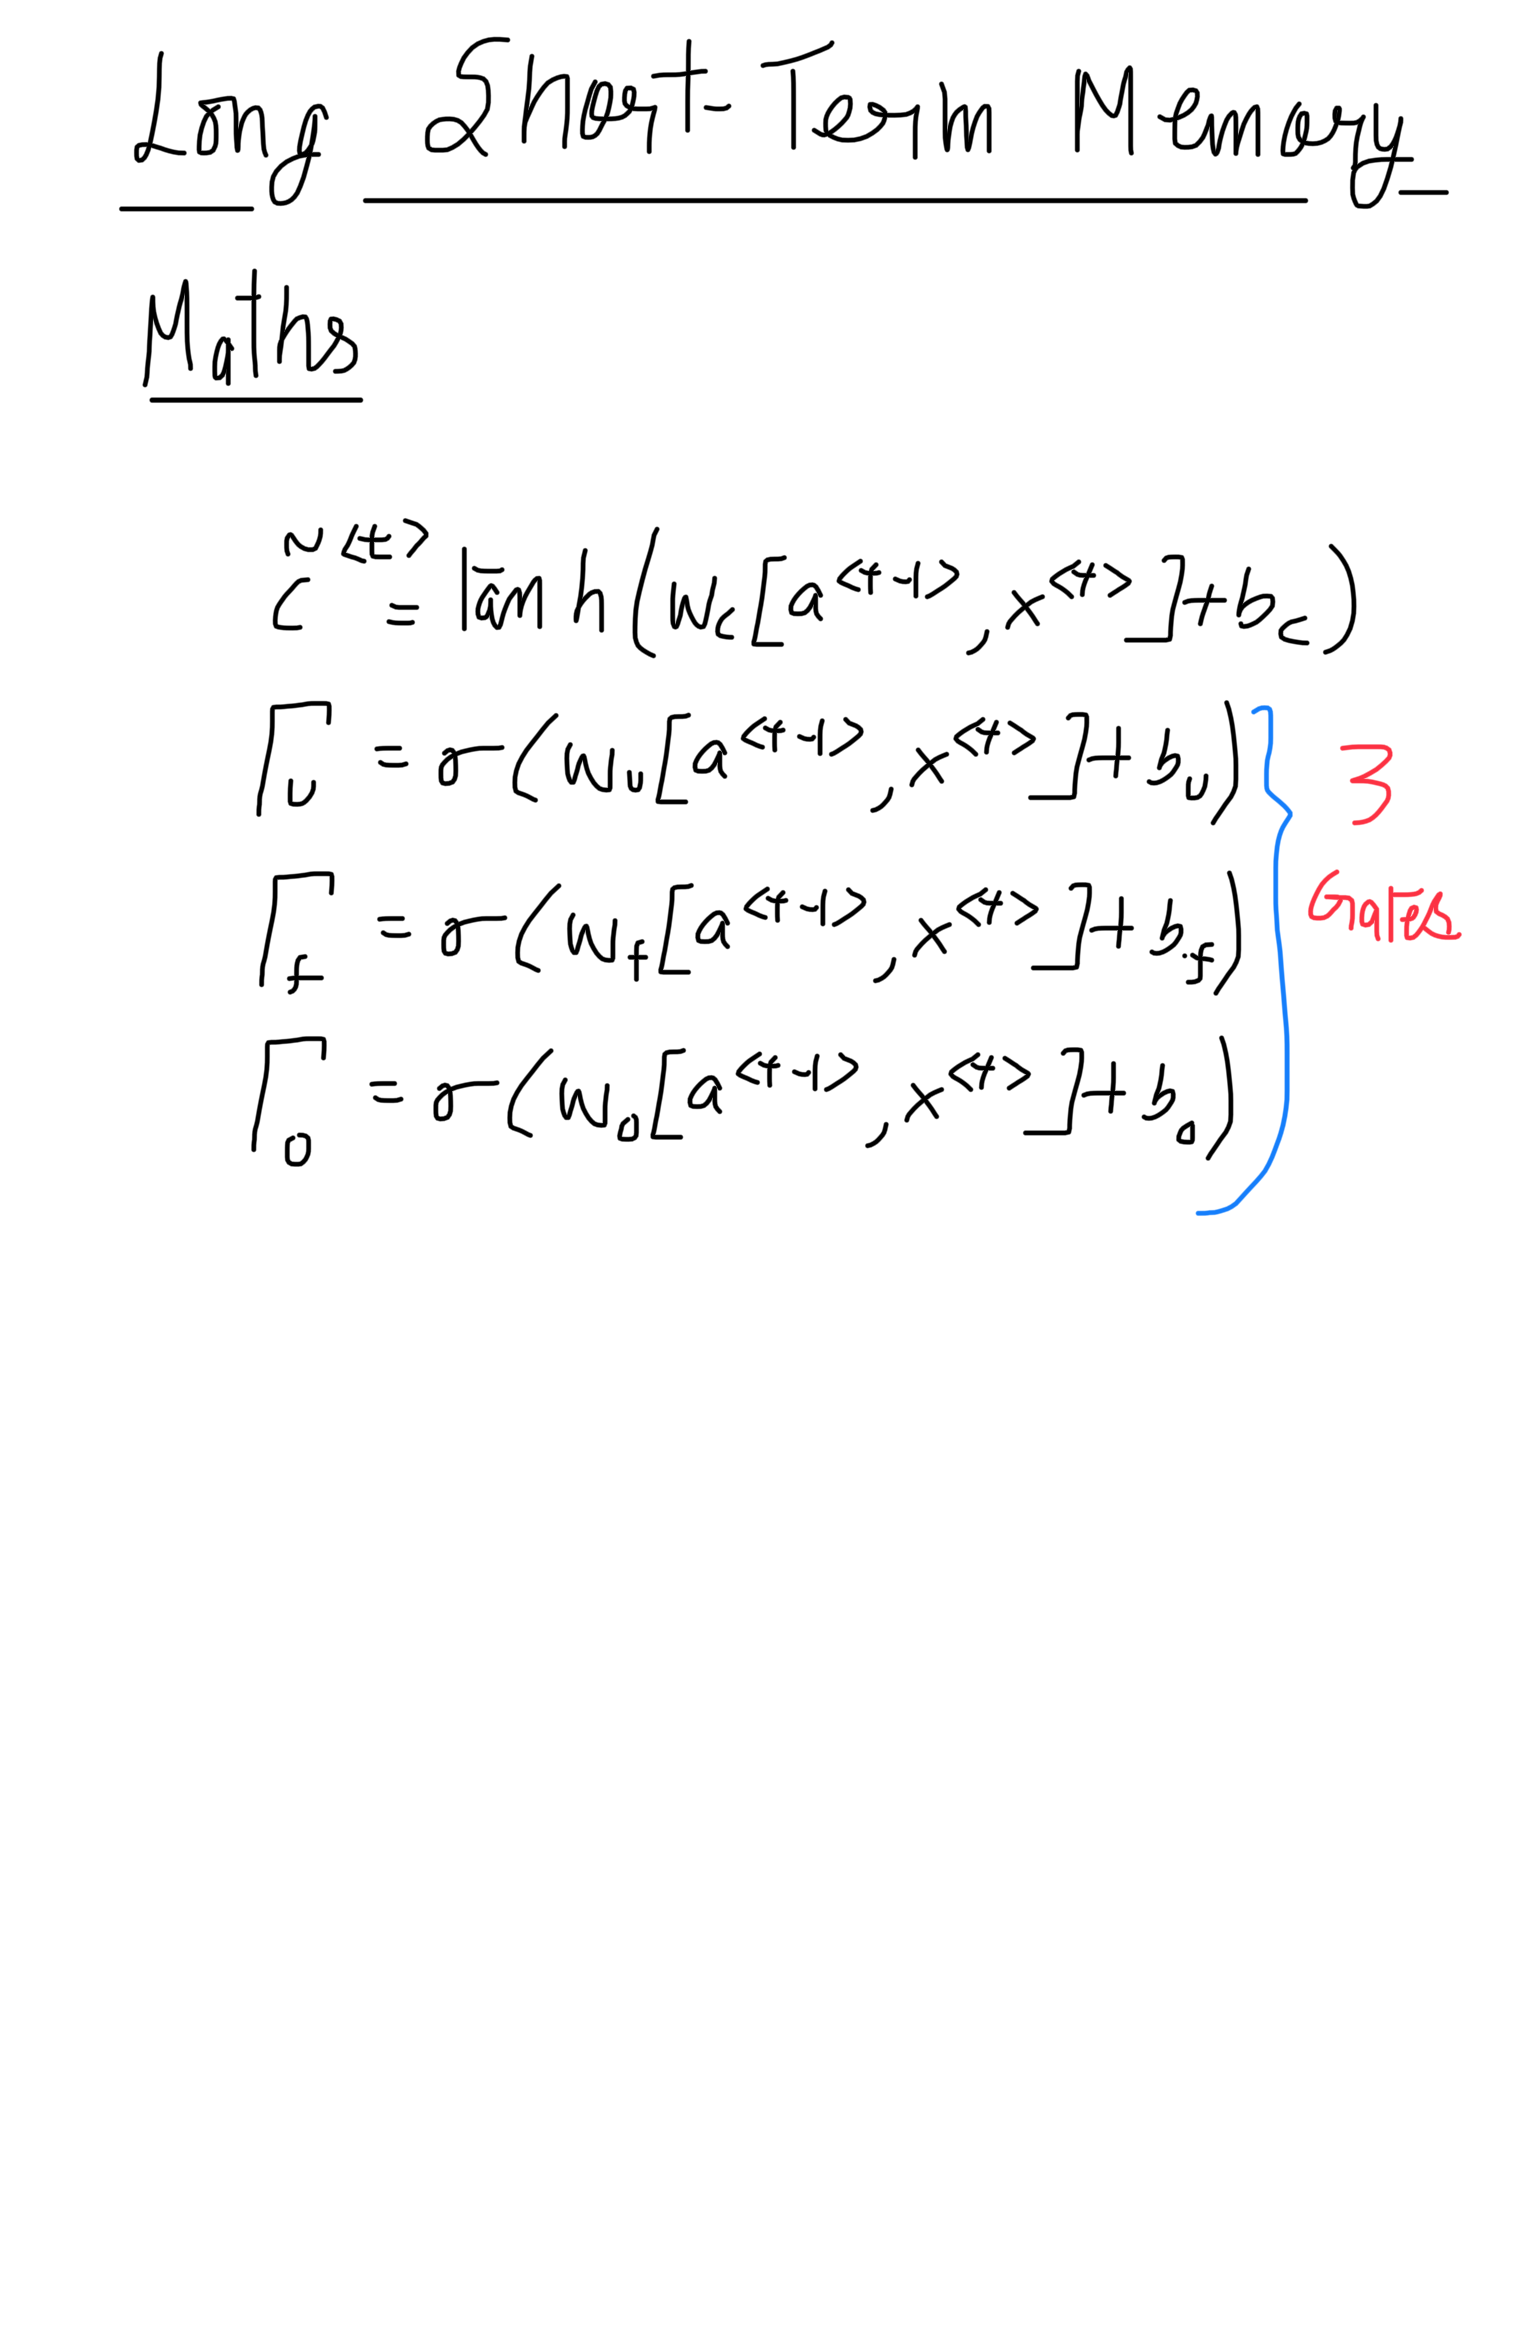 Long Short-Term Memory
Maths
c̃^<t> = tanh(W_c[a^<t-1>, x^<t>] + b_c)
Γ_u = σ(W_u[a^<t-1>, x^<t>] + b_u)
3
Γ_f = σ(W_f[a^<t-1>, x^<t>] + b_f)
Gates
Γ_o = σ(W_o[a^<t-1>, x^<t>] + b_o)